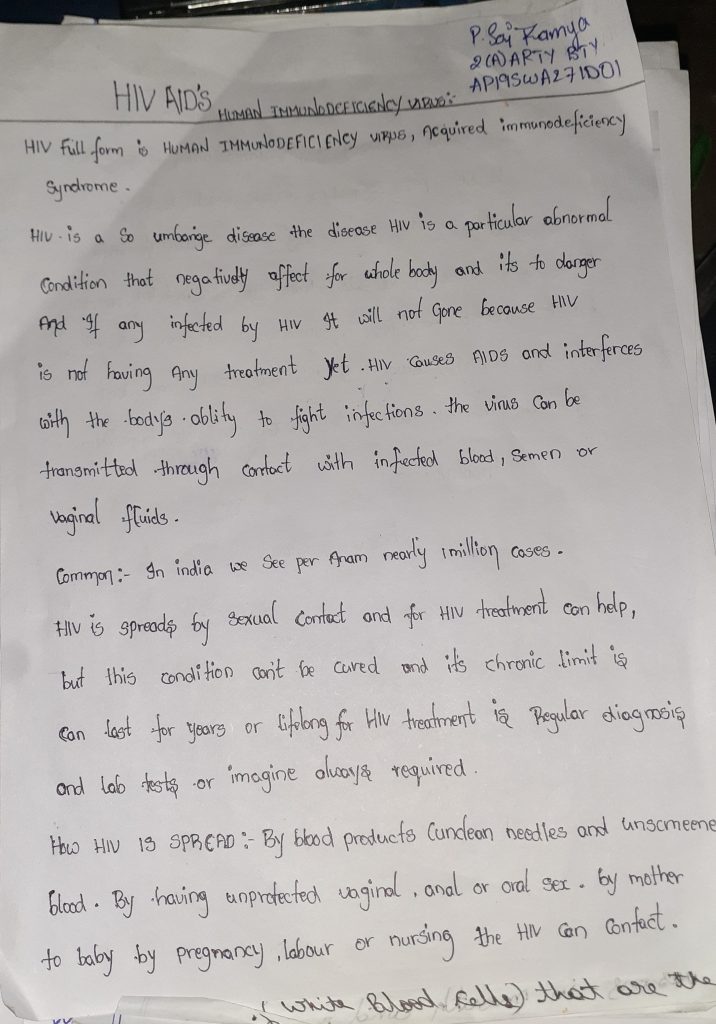 P. Sai Ramya
2(A) ARTY BTY
AP19SWA271D01
HIV AID'S HUMAN IMMUNODEFICIENCY VIRUS:-
HIV Full form is HUMAN IMMUNODEFICIENCY VIRUS, Acquired immunodeficiency
Syndrome.
HIV is a So umbarige disease the disease HIV is a particular abnormal
Condition that negatively affect for whole body and its to danger
And If any infected by HIV It will not Gone because HIV
is not having Any treatment Yet. HIV Causes AIDS and interferces
with the body's ablity to fight infections. the virus Can be
transmitted through contact with infected blood, Semen or
Vaginal fluids.
Common:- In india we See per Anam nearly 1 million Cases.
HIV is spreads by Sexual Contact and for HIV treatment can help,
but this condition can't be cured and it's chronic limit is
Can last for years or Lifelong for HIV treatment is Regular diagnosis
and Lab tests or imagine always required.
How HIV IS SPREAD:- By blood products (unclean needles and unscrneene
blood. By having unprotected vaginal, anal or oral sex. by mother
to baby by pregnancy, labour or nursing the HIV Can Contact.
(White Blood Cells) that are the